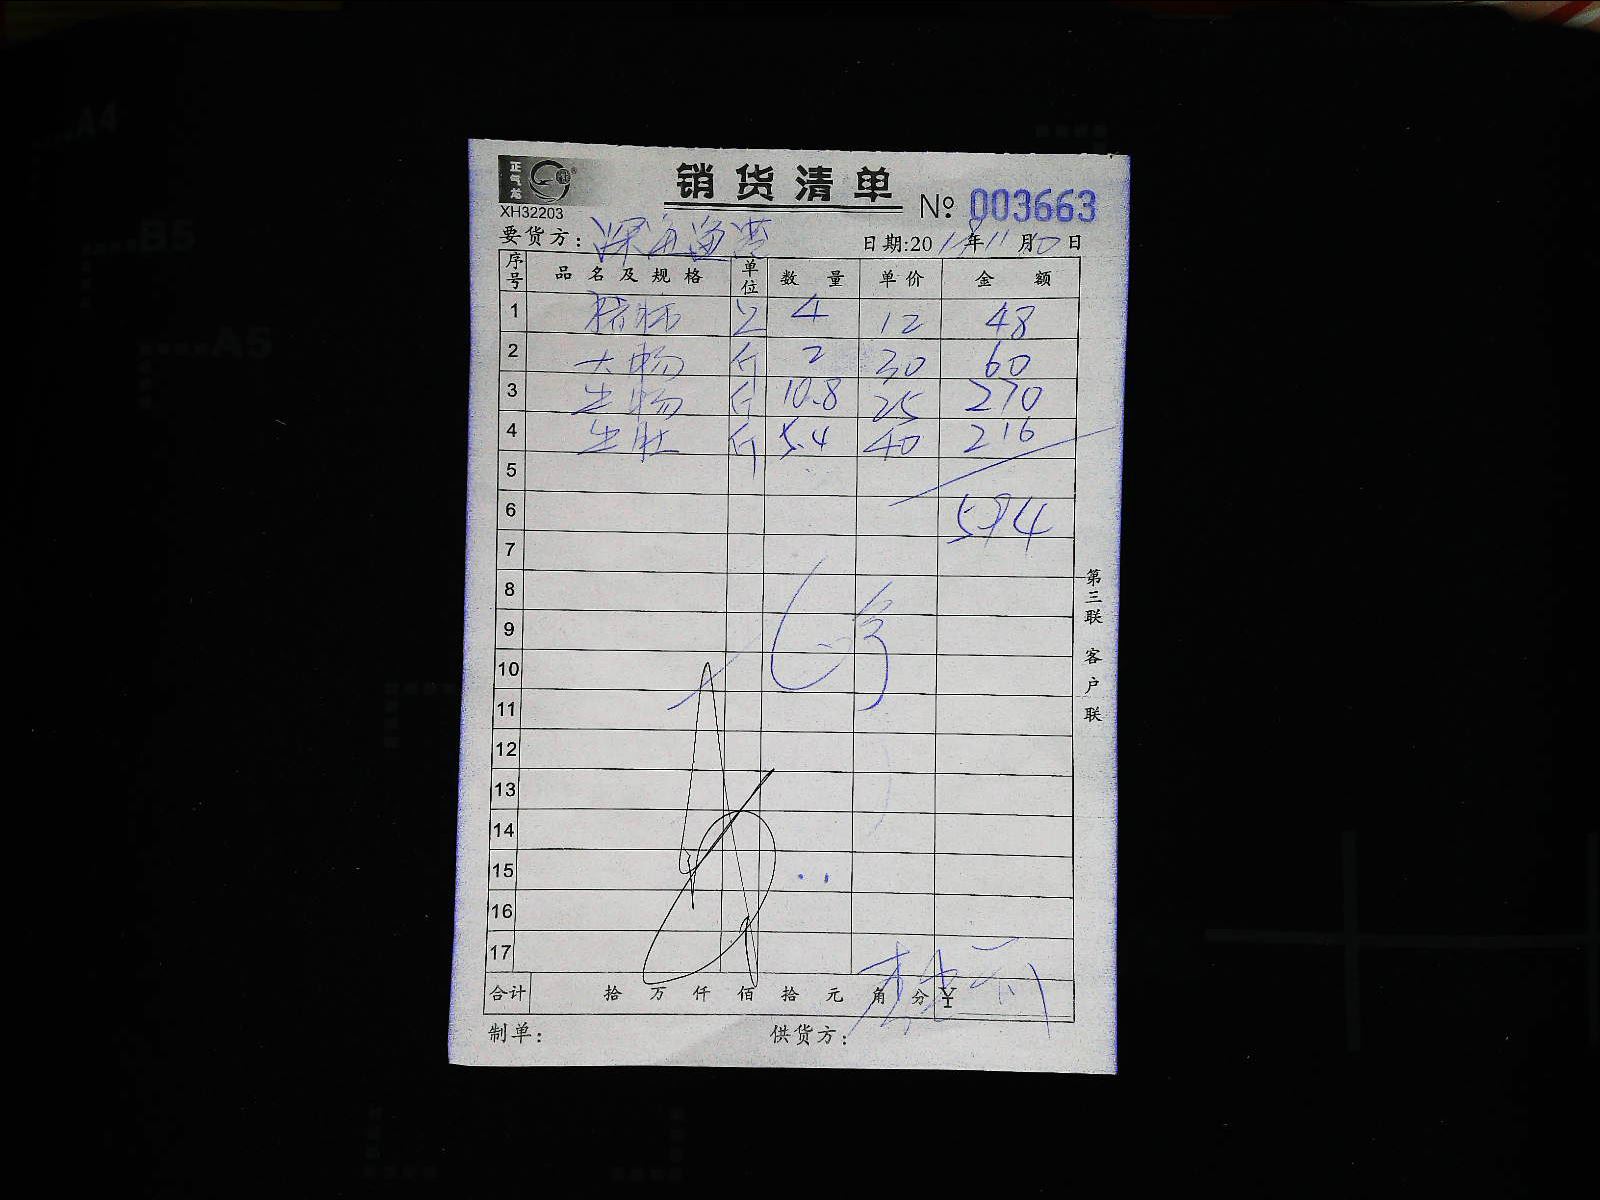 正气龙
销货清单
XH32203
№ 003663
要货方：深海渔港 日期:2018年11月10日
序号 品名及规格 单位 数量 单价 金额
1 4 12 48
2 大肠 斤 2 30 60
3 生肠 斤 10.8 25 270
4 生肚 斤 5.4 40 216
5
6 594
7
8
9
10
11
12
13
14
15
16
17
合计 拾万仟佰拾元角分¥
制单： 供货方：
第三联 客户联
A4
B5
A5